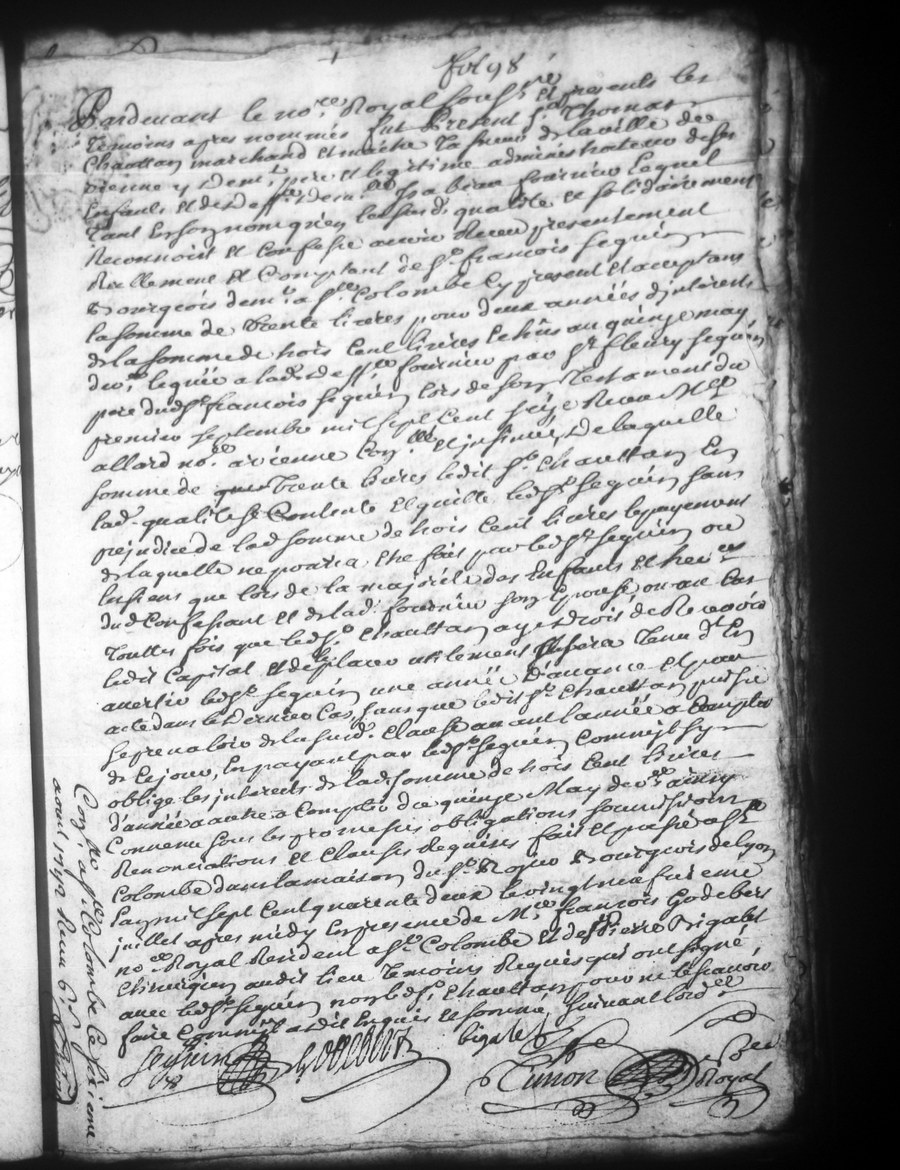 fol 98
Pardevant le no.re Royal soubs.né et presents les
temoins apres nommés fut Present s.r Thomas
Chauttan marchand et maitre Tasneur de la ville de
vienne y dem.t pere et legitime administrateur de ses
Enfants et de deff.te dem.lle Izabeau fournier Lequel
tant en son nom qu'en la susd. qualité et solidairement
Reconnoist et Confesse avoir Receu presentement
Reellement et Comptant de s.r francois seguin
Bourgeois dem.t a s.te Colombe Cy present et aceptant
la somme de Trente livres pour deux années d'interets
de la somme de trois Cent livres echus au quinze may
der. leguée a lad. deff.te fournier par s.r fleury seguin
pere dud s.r francois seguin lors de son Testament du
premier septembre mil sept Cent seize Receu M.e
allard no.re a vienne Con.llé et insinué, de laquelle
somme de Trente livres ledit s.r Chauttan En
lad. qualité se Contente et quitte led s.r seguin sans
prejudice de lad somme de trois Cent livres le payement
de laquelle ne pourra etre fait par led s.r seguin ou
les siens que lors de la majorité des Enfants et her.ers
dud Confessant et de lad. fournier son Epouse ou au Cas
Touttes fois que led s.r Chauttan aye droit de Recevoir
ledit Capital et de placer utilement il sera Tenu d'En
avertir led s.r seguin une année d'avance et par
acte dans le dernier Cas, sans que ledit s.r Chauttan puisse
se prevaloir de la susd. Clause avant l'année a Compter
de Ce jour, En payant par led s.r seguin Comme il s'y
oblige les interets de lad. somme de trois Cent livres
d'année a autre a Compter du quinze May der. ainsy
Convenu sous les promesses obligations soumissions
Renonciations et Clauses Requises fait et passé a s.te
Colombe dans la maison du s.r Rozier Bourgeois de Lyon
L'an mil sept Cent quarente deux le vingt neufvieme
juillet apres midy En presence de M.e francois Godebert
no.re Royal Resident a s.te Colombe et de s.r Pierre Bigalet
Chirurgien audit lieu Temoins Requis qui ont signé
avec led s.r seguin non led s.r Chauttan pour ne le scavoir
faire Comme il a dit Enquis et sommé suivant lord.ce
Seguin Godebert bigalet
Simon no.re
Royal
Con.llé a s.te Colombe Le sixieme
aoust 1742 Receu 6 s